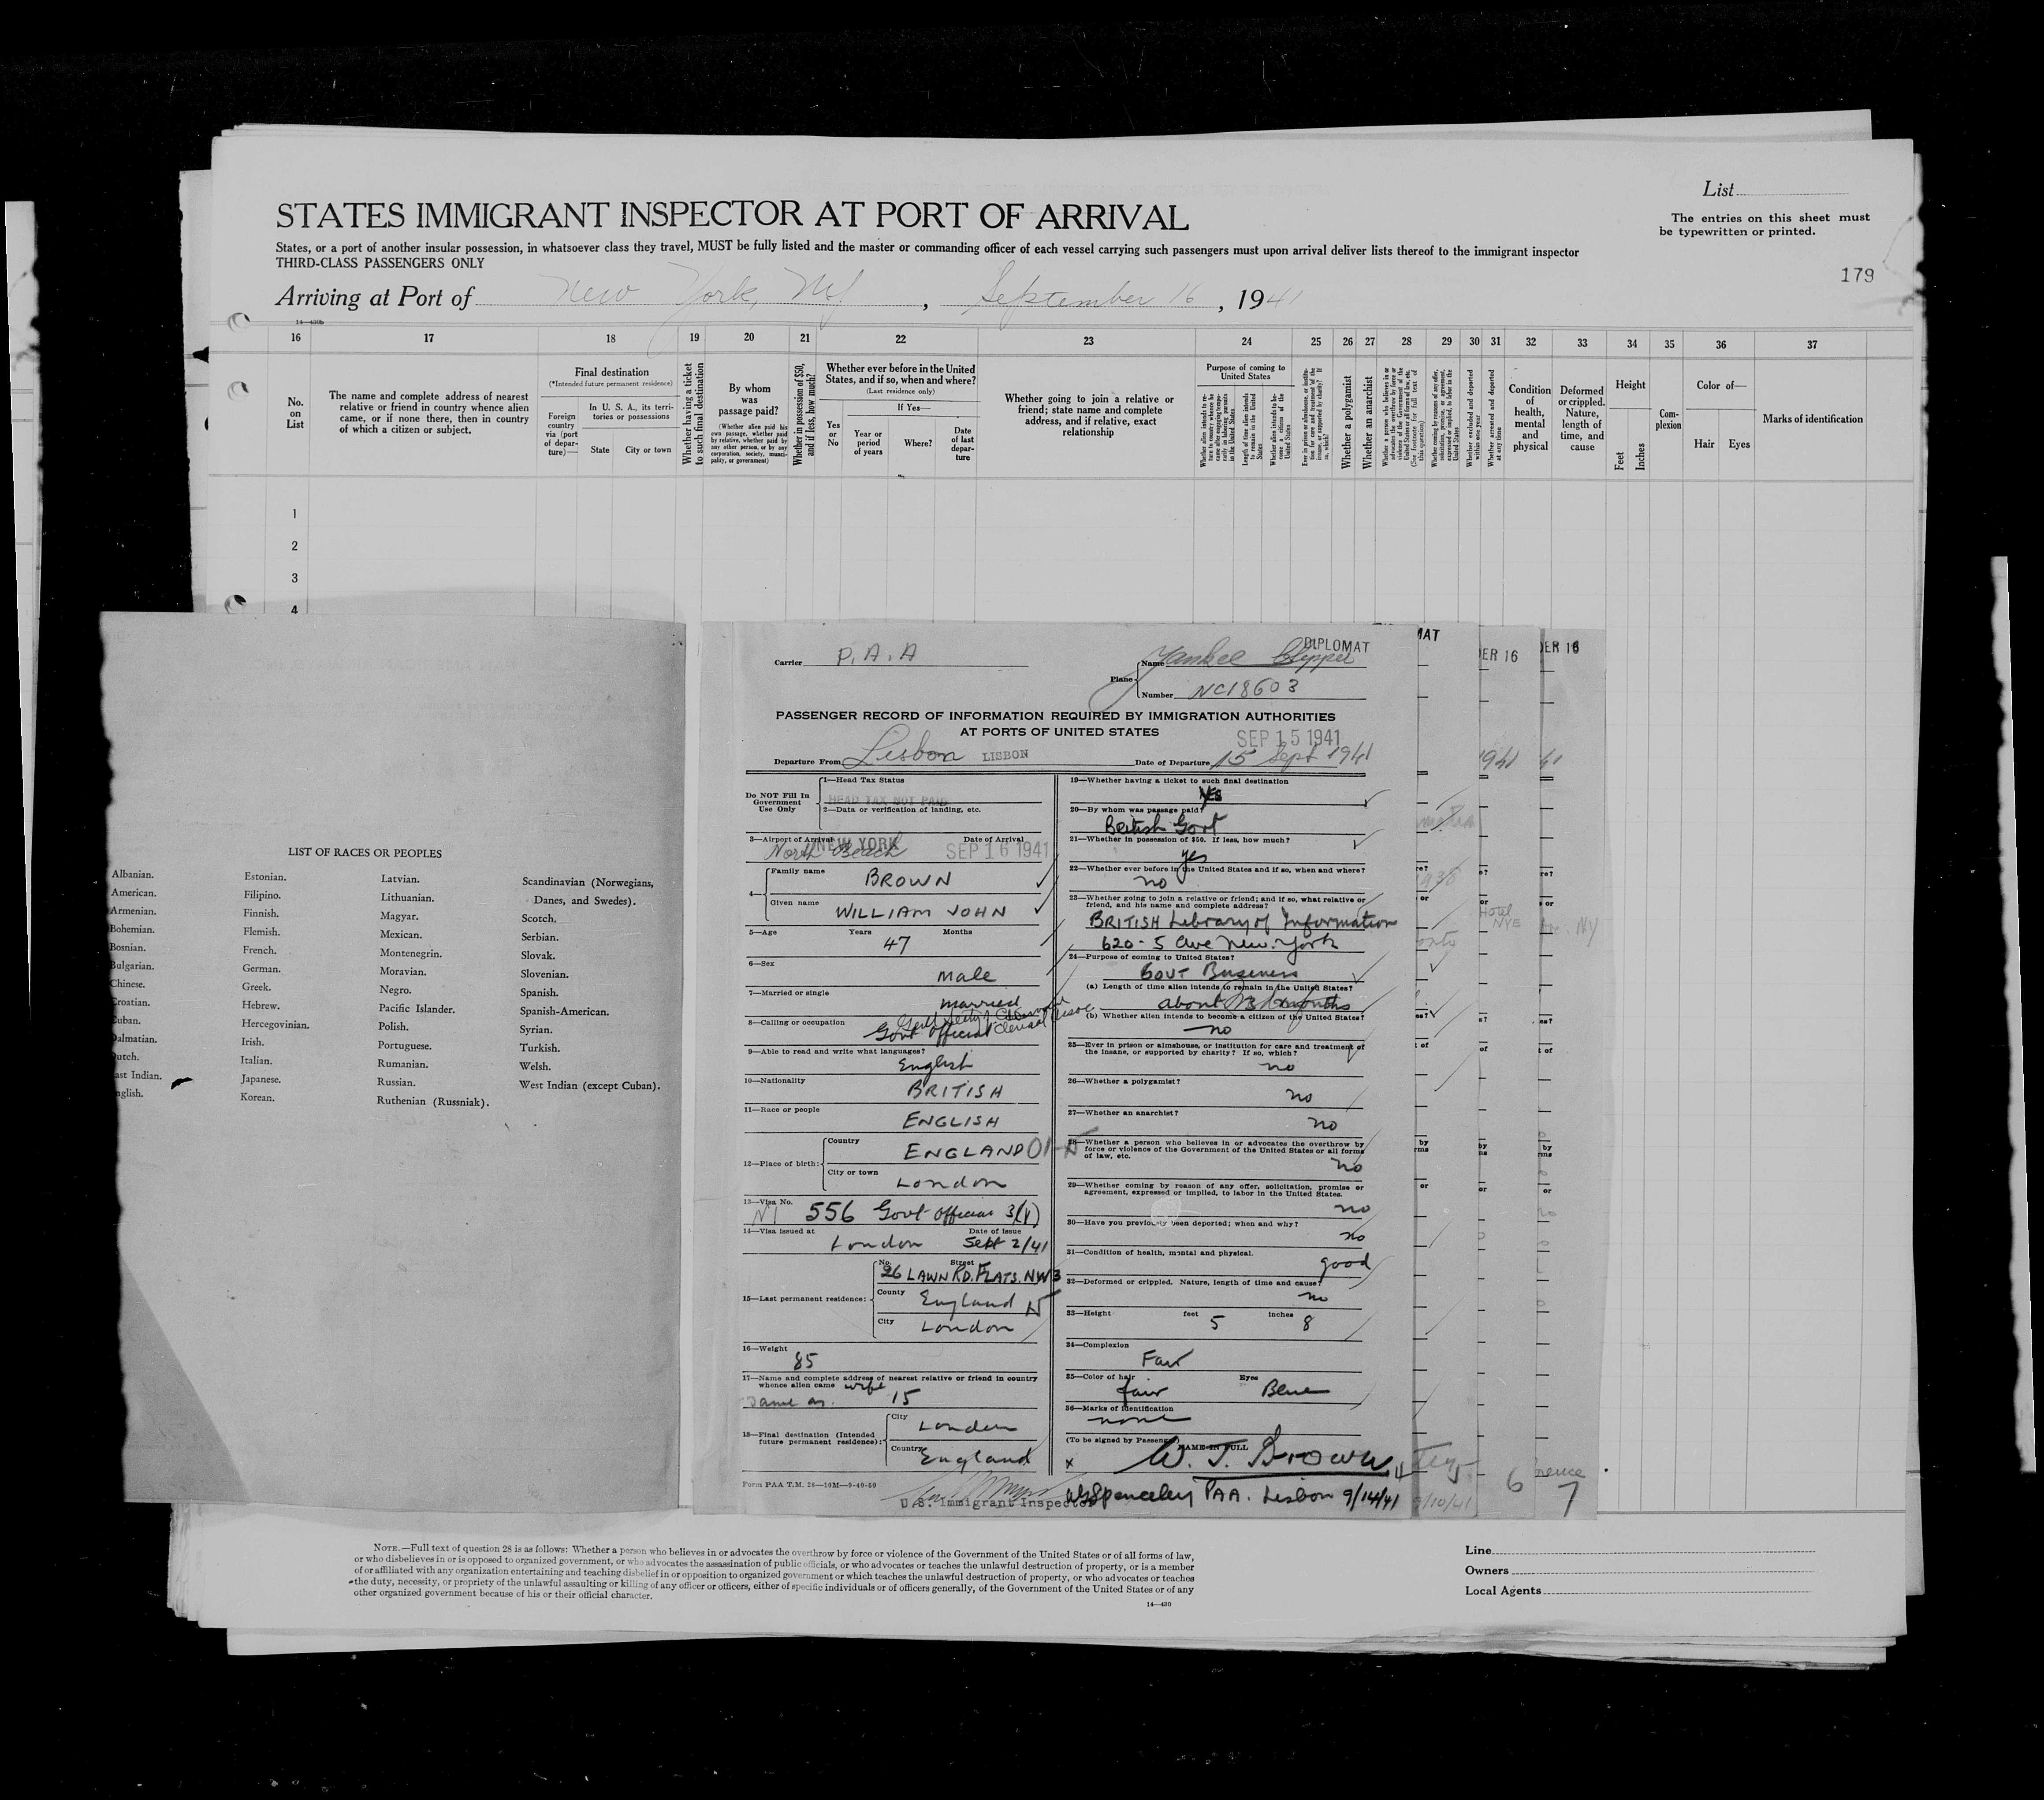 List
STATES IMMIGRANT INSPECTOR AT PORT OF ARRIVAL
The entries on this sheet must
be typewritten or printed.
States, or a port of another insular possession, in whatsoever class they travel, MUST be fully listed and the master or commanding officer of each vessel carrying such passengers must upon arrival deliver lists thereof to the immigrant inspector
THIRD-CLASS PASSENGERS ONLY
179
Arriving at Port of New York, NY, September 16, 1941
16 17 18 19 20 21 22 23 24 25 26 27 28 29 30 31 32 33 34 35 36 37
No.
on
List
The name and complete address of nearest
relative or friend in country whence alien
came, or if none there, then in country
of which a citizen or subject.
Final destination
(*Intended future permanent residence)
Foreign
country
via (port
of depar-
ture)—
In U. S. A., its terri-
tories or possessions
State City or town
Whether having a ticket
to such final destination
By whom
was
passage paid?
(Whether alien paid his
own passage, whether paid
by relative, whether paid by
any other person, or by any
corporation, society, munici-
pality, or government)
Whether in possession of $50,
and if less, how much?
Whether ever before in the United
States, and if so, when and where?
(Last residence only)
If Yes—
Yes
or
No
Year or
period
of years
Where?
Date
of last
depar-
ture
Whether going to join a relative or
friend; state name and complete
address, and if relative, exact
relationship
Purpose of coming to
United States
Whether a polygamist
Whether an anarchist
Condition
of
health,
mental
and
physical
Deformed
or crippled.
Nature,
length of
time, and
cause
Height
Feet Inches
Com-
plexion
Color of—
Hair Eyes
Marks of identification
1
2
3
4
LIST OF RACES OR PEOPLES
Albanian. Estonian. Latvian. Scandinavian (Norwegians,
American. Filipino. Lithuanian. Danes, and Swedes).
Armenian. Finnish. Magyar. Scotch.
Bohemian. Flemish. Mexican. Serbian.
Bosnian. French. Montenegrin. Slovak.
Bulgarian. German. Moravian. Slovenian.
Chinese. Greek. Negro. Spanish.
Croatian. Hebrew. Pacific Islander. Spanish-American.
Cuban. Hercegovinian. Polish. Syrian.
Dalmatian. Irish. Portuguese. Turkish.
Dutch. Italian. Rumanian. Welsh.
ast Indian. Japanese. Russian. West Indian (except Cuban).
nglish. Korean. Ruthenian (Russniak).
DIPLOMAT
Carrier P.A.A
Plane Name Yankee Clipper
Number NC18603
PASSENGER RECORD OF INFORMATION REQUIRED BY IMMIGRATION AUTHORITIES
AT PORTS OF UNITED STATES
SEP 15 1941
Departure From Lisbon LISBON Date of Departure 15 Sept 1941
Do NOT Fill In
Government
Use Only
1—Head Tax Status
HEAD TAX NOT PAID
2—Data or verification of landing, etc.
3—Airport of Arrival NEW YORK Date of Arrival
North Beach SEP 16 1941
4— Family name BROWN
Given name WILLIAM JOHN
5—Age Years Months
47
6—Sex
Male
7—Married or single
married
8—Calling or occupation
Govt official
9—Able to read and write what languages?
English
10—Nationality
BRITISH
11—Race or people
ENGLISH
12—Place of birth: Country
ENGLAND
City or town
London
13—Visa No.
556 Govt Official 3(1)
14—Visa issued at Date of Issue
London Sept 2/41
15—Last permanent residence: No. Street
26 LAWN RD. FLATS. NW3
County England
City London
16—Weight
85
17—Name and complete address of nearest relative or friend in country
whence alien came wife
Same as 15
18—Final destination (Intended
future permanent residence): City London
Country England
Form PAA T.M. 28—10M—9-40-50
U.S. Immigrant Inspector
19—Whether having a ticket to such final destination
YES
20—By whom was passage paid?
British Govt
21—Whether in possession of $50. If less, how much?
yes
22—Whether ever before in the United States and if so, when and where?
no
23—Whether going to join a relative or friend; and if so, what relative or
friend, and his name and complete address?
BRITISH Library of Information
620 - 5 Ave New York
24—Purpose of coming to United States?
Govt Business
(a) Length of time alien intends to remain in the United States?
about 3 months
(b) Whether alien intends to become a citizen of the United States?
no
25—Ever in prison or almshouse, or institution for care and treatment of
the insane, or supported by charity? If so, which?
no
26—Whether a polygamist?
no
27—Whether an anarchist?
no
28—Whether a person who believes in or advocates the overthrow by
force or violence of the Government of the United States or all forms
of law, etc.
no
29—Whether coming by reason of any offer, solicitation, promise or
agreement, expressed or implied, to labor in the United States.
no
30—Have you previously been deported; when and why?
no
31—Condition of health, mental and physical.
good
32—Deformed or crippled. Nature, length of time and cause?
no
33—Height feet 5 inches 8
34—Complexion
Fair
35—Color of hair Eyes
fair Blue
36—Marks of identification
none
(To be signed by Passenger) NAME IN FULL
x W. J. Brown
Spenceley PAA. Lisbon 9/14/41
MAT
ER 16
ER 16
6
7
NOTE.—Full text of question 28 is as follows: Whether a person who believes in or advocates the overthrow by force or violence of the Government of the United States or of all forms of law,
or who disbelieves in or is opposed to organized government, or who advocates the assassination of public officials, or who advocates or teaches the unlawful destruction of property, or is a member
of or affiliated with any organization entertaining and teaching disbelief in or opposition to organized government or which teaches the unlawful destruction of property, or who advocates or teaches
the duty, necessity, or propriety of the unlawful assaulting or killing of any officer or officers, either of specific individuals or of officers generally, of the Government of the United States or of any
other organized government because of his or their official character.
14—430
Line
Owners
Local Agents